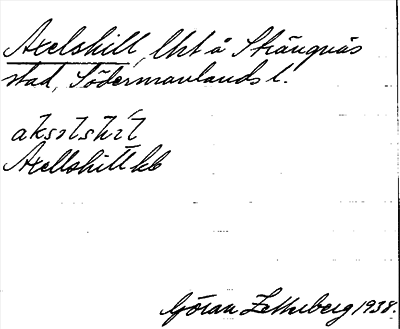 Axelshill, lht å Strängnäs
stad, Södermanlands l.
Axellshill kb
Göran Zetterberg 1938.